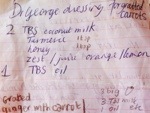 D. George dressing for grated
carrots
2 TBS coconut milk
Turmeric 1tsp
honey 1tsp
zest / juice orange/lemon
1 TBS oil
Grated
ginger with carrot
1 oil